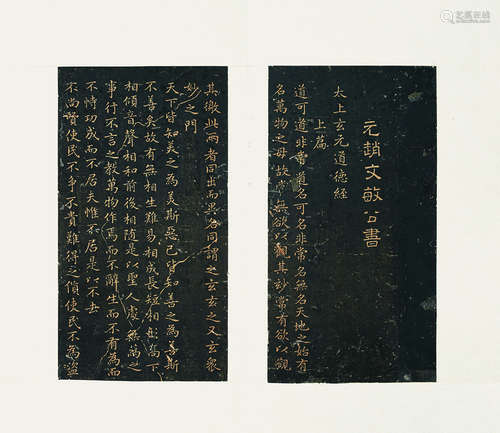 元趙文敏公書
太上玄元道德經
上篇
道可道非常道名可名非常名無名天地之始有
名萬物之母故常無欲以觀其妙常有欲以觀
其徼此兩者同出而異名同謂之玄玄之又玄衆
妙之門
天下皆知美之為美斯惡已皆知善之為善斯
不善矣故有無相生難易相成長短相形高下
相傾音聲相和前後相隨是以聖人處無為之
事行不言之教萬物作焉而不辭生而不有為而
不恃功成而不居夫惟不居是以不去
不尚賢使民不爭不貴難得之貨使民不為盜